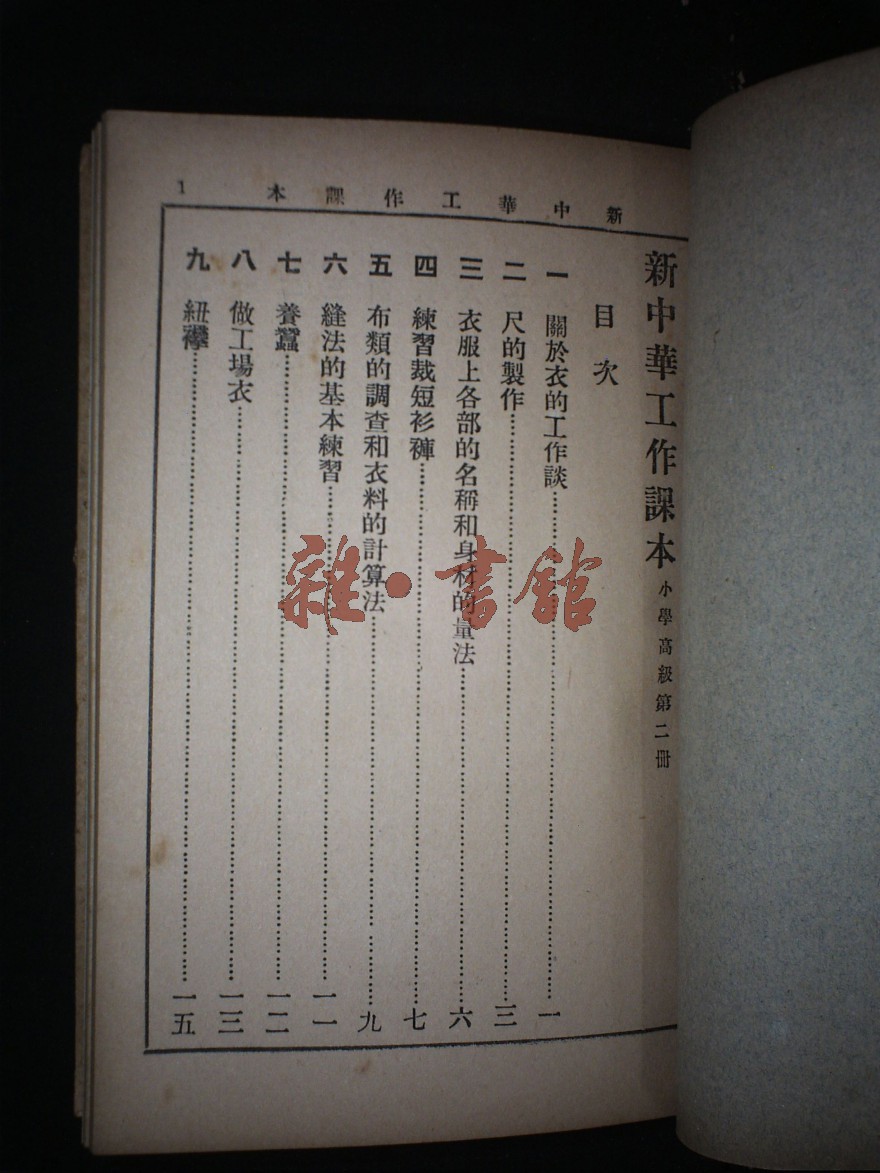 新中華工作課本 1
新中華工作課本 小學高級第二冊
目次
一 關於衣的工作談……一
二 尺的製作……三
三 衣服上各部的名稱和身材的量法……六
四 練習裁短衫褲……七
五 布類的調查和衣料的計算法……九
六 縫法的基本練習……一一
七 養蠶……一二
八 做工場衣……一三
九 紐襻……一五
雜·書館